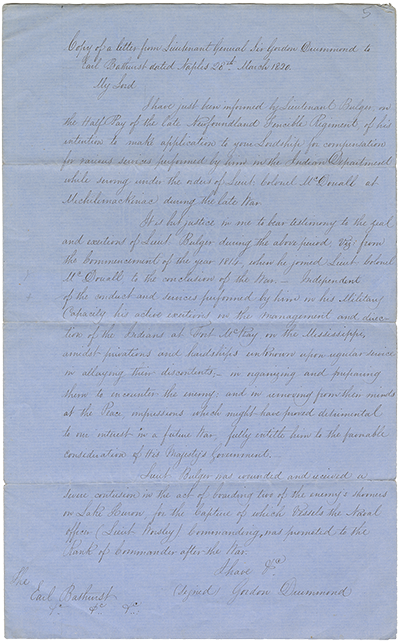 5
Copy of a letter from Lieutenant General Sir Gordon Drummond to
Earl Bathurst dated Naples 26th March 1820.
My Lord
I have just been informed by Lieutenant Bulger, on
the Half Pay of the late Newfoundland Fencible Regiment, of his
intention to make application to your Lordship for compensation
for various services performed by him in the Indian Department
while serving under the orders of Lieut. Colonel McDouall at
Michilimackinac during the late War.
It is but justice in me to bear testimony to the zeal
and exertions of Lieut. Bulger during the above period Viz from
the Commencement of the year 1814 when he joined Lieut. Colonel
McDouall to the conclusion of the War. — Independent
of the conduct and services performed by him in his Military
Capacity his active exertions in the management and direc-
tion of the Indians at Fort McKay on the Mississippi,
amidst privations and hardships unknown upon regular service
in allaying their discontents; — in organizing and preparing
them to encounter the enemy; and in removing from their minds
at the Peace, impressions which might have proved detrimental
to our interest in a future War, fully entitle him to the favorable
consideration of His Majesty's Government.
Lieut. Bulger was wounded and received a
severe contusion in the act of boarding two of the enemy's schooners
in Lake Huron for the Capture of which Vessels the Naval
officer (Lieut. Worsley) Commanding, was promoted to the
Rank of Commander after the War.
I have &ca
(signed) Gordon Drummond
The
Earl Bathurst
&c. &c. &c.